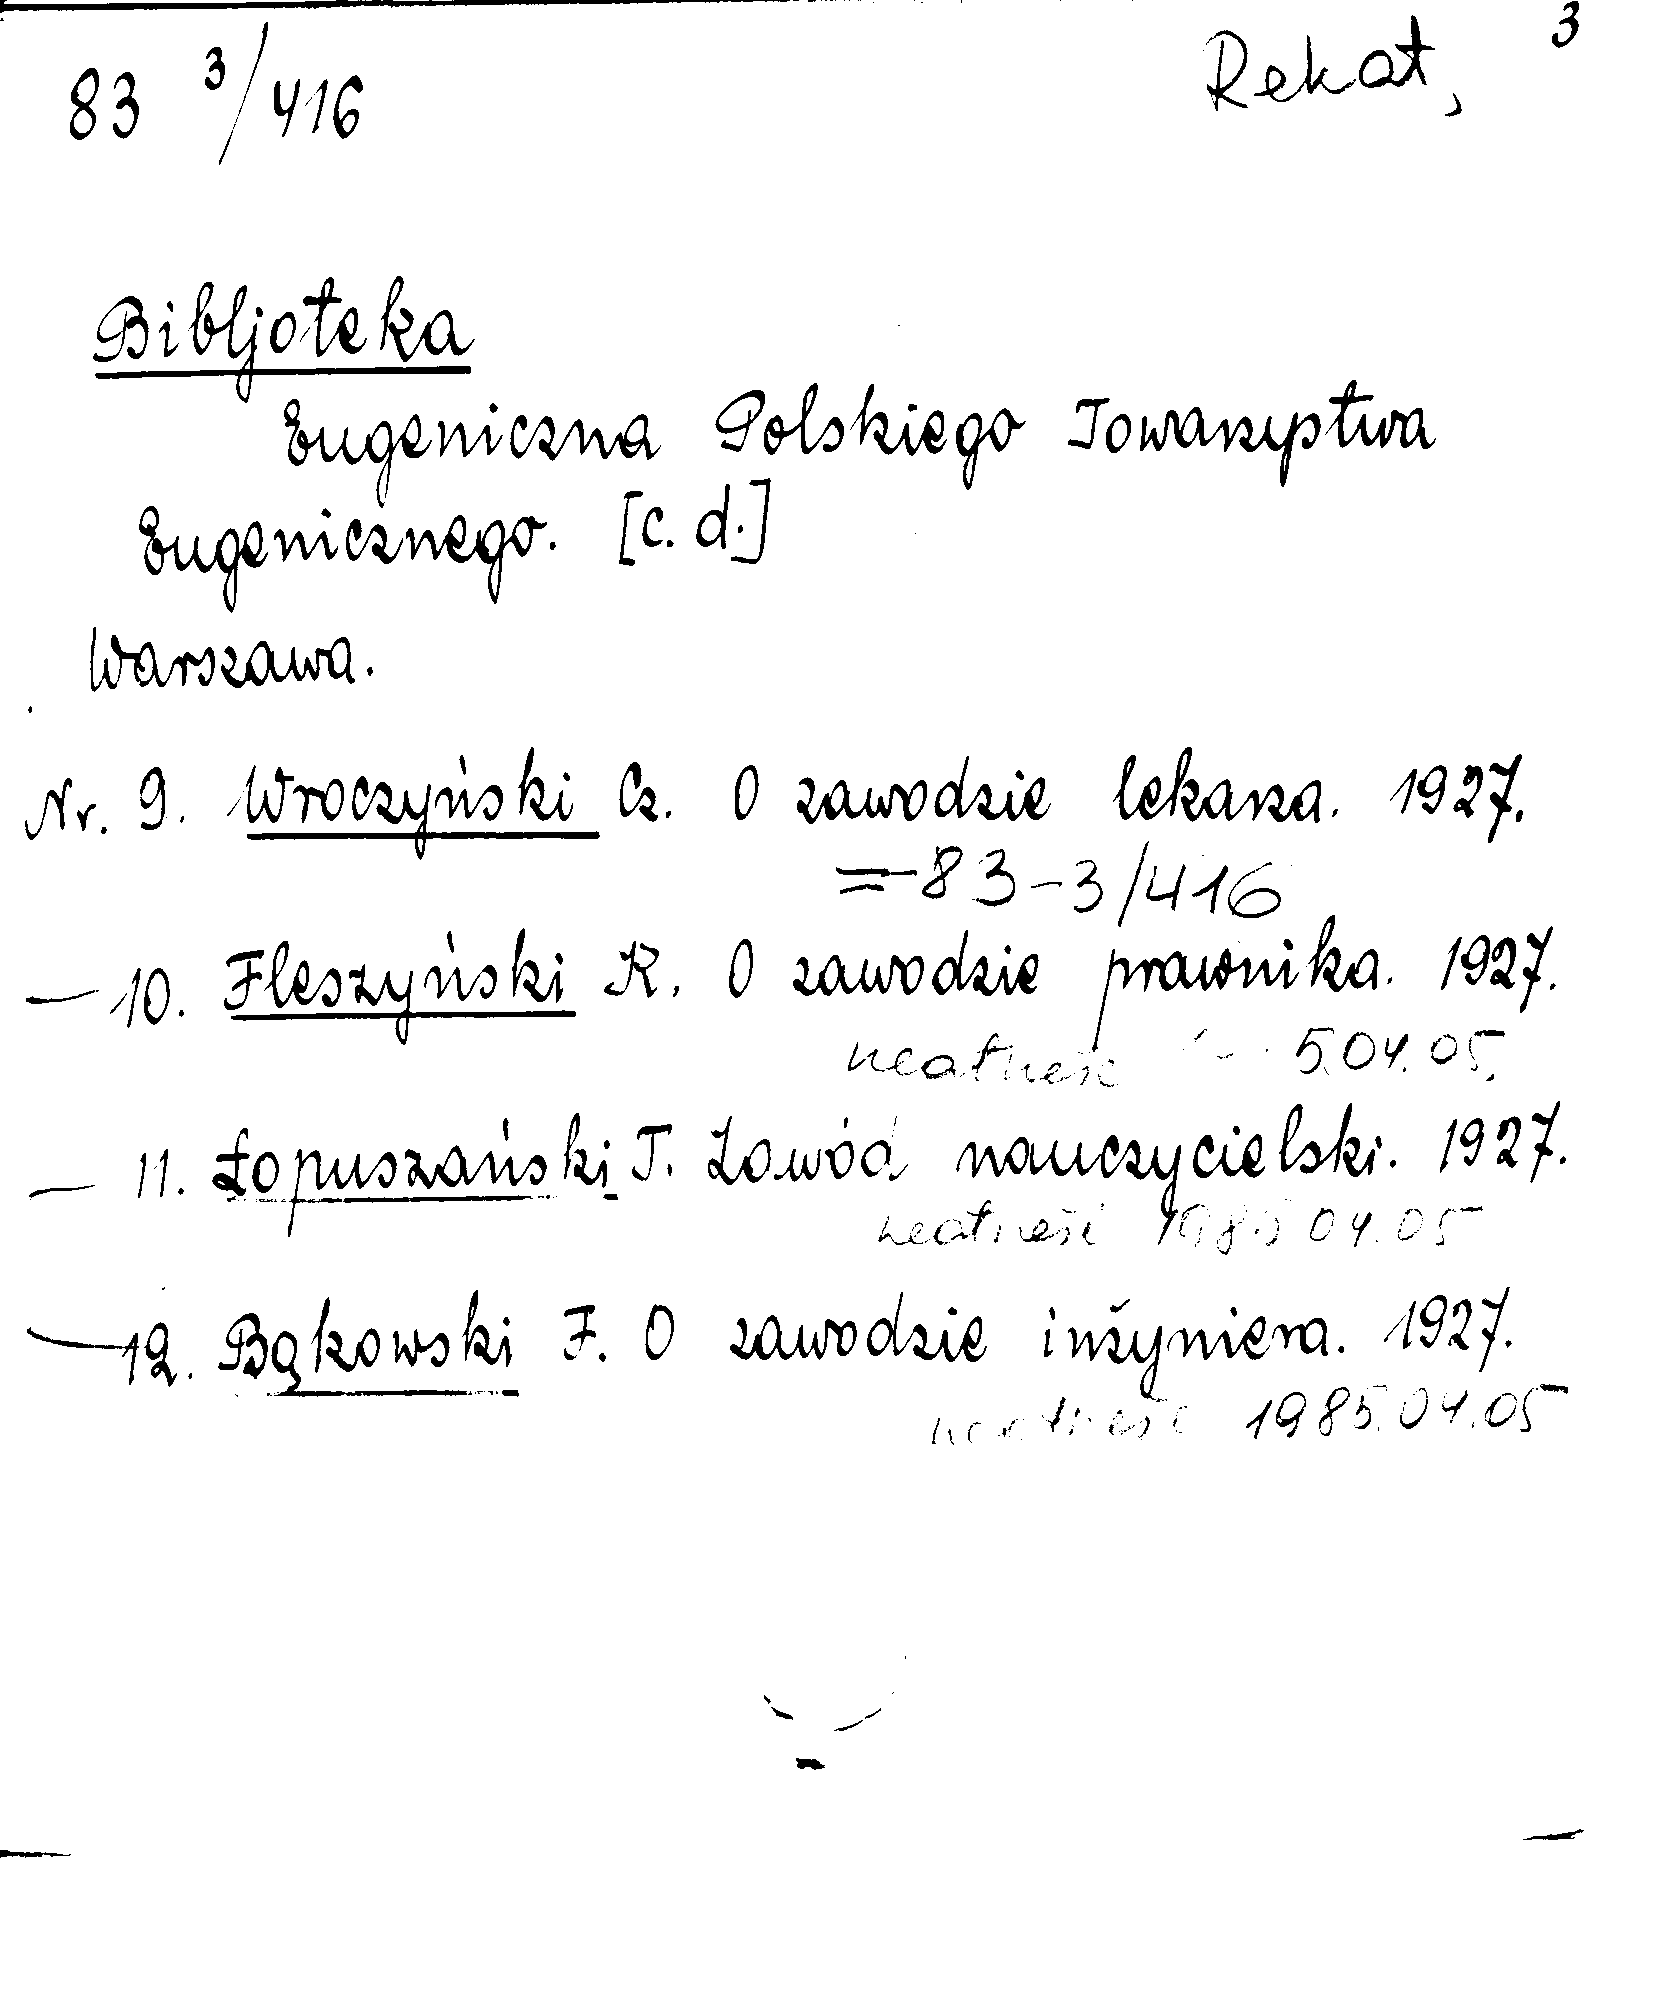 83 3/416 Rekat, 3
Bibljoteka
Eugeniczna Polskiego Towarzystwa
Eugenicznego. [c. d.]
Warszawa.
Nr. 9. Wroczyński Cz. O zawodzie lekarza. 1927.
= 83-3/416
— 10. Fleszyński K. O zawodzie prawnika. 1927.
5.04.05.
— 11. Łopuszański T. Zawód nauczycielski. 1927.
04.05
— 12. Bąkowski F. O zawodzie inżyniera. 1927.
1985.04.05